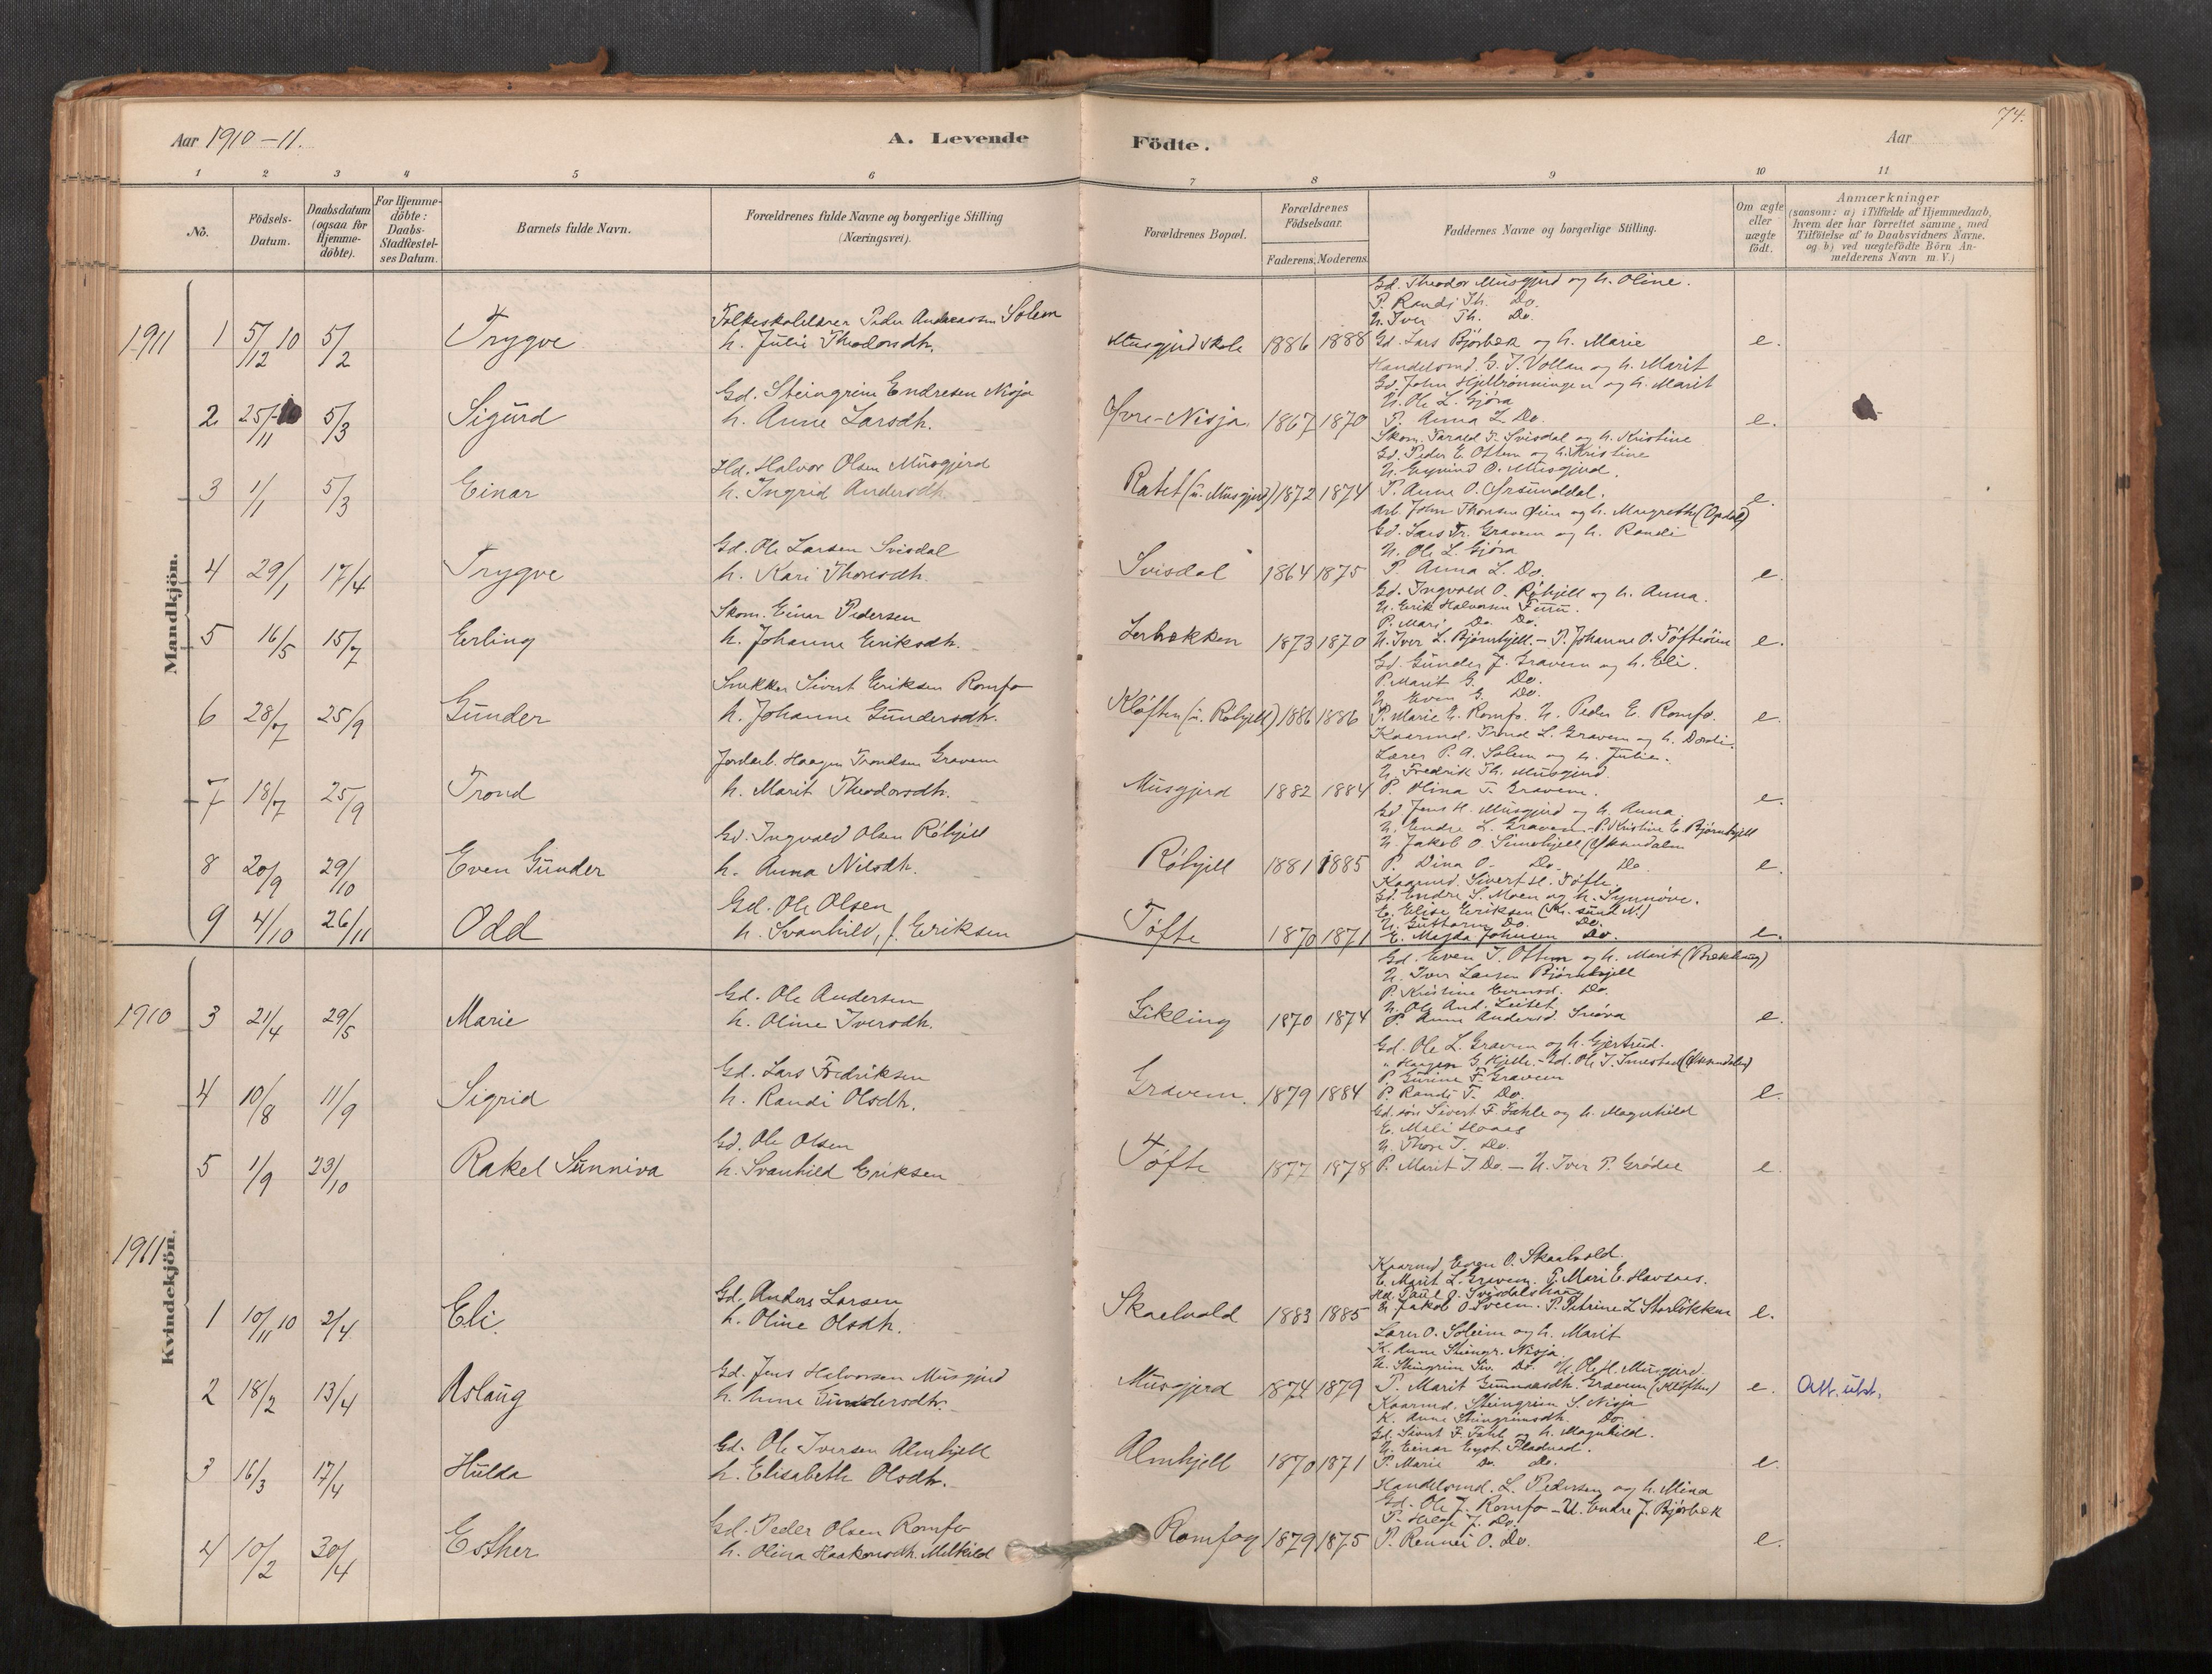 74.
Aar 1910-11.
A. Levende
Födte.
Aar
1 2 3 4 5 6 7 8 9 10 11
No.
Födsels-Datum.
Daabsdatum (ogsaa for Hjemmedöbte).
For Hjemmedöbte: Daabs-Stadfæstelses Datum.
Barnets fulde Navn.
Forældrenes fulde Navne og borgerlige Stilling (Næringsvei).
Forældrenes Bopæl.
Forældrenes Födselsaar.
Faderens. Moderens.
Faddernes Navne og borgerlige Stilling.
Om ægte eller uægte födt.
Anmærkninger
(saasom: a) i Tilfælde af Hjemmedaab, hvem der har forrettet samme, med Tilföielse af to Daabsvidners Navne. og b) ved uægtefödte Börn Anmelderens Navn m. V.)
Mandkjön.
1911
1 5/12 10 5/2 Trygve
Folkeskolelærer Peder Andreassen Solem
h. Julie Theodorsdh.
Musgjerd skole 1886 1888
Gd. Theodor Musgjerd og h. Oline.
P. Randi Th. Do.
U. Iver Th. Do.
Gd. Lars Bjørbæk og h. Marie
e.
2 25/11 10 5/3 Sigurd
Gd. Steingrim Endresen Nisja
h. Anne Larsdh.
Øvre-Nisja 1867 1870
Handelsmd. G. J. Vollan og h. Marit
Gd. John Hjellrønningen og h. Marit
U. Ole L. Gjøra
P. Anna L. Do.
e.
3 1/1 5/3 Einar
Hd. Halvor Olsen Musgjerd
h. Ingrid Andersdh.
Rabet (u. Musgjerd) 1872 1874
Skom. Tarald T. Svisdal og h. Kristine
Gd. Peder E. Ottem og h. Kristine
U. Eyvind O. Musgjerd.
P. Anne O. Grøunddal.
Arb. John Thorsen Øien og h. Margrethe (Opdal)
e.
4 29/1 17/4 Trygve
Gd. Ole Larsen Svisdal
h. Kari Thoresdh.
Svisdal 1864 1875
Gd. Lars Fr. Gravem og h. Randi
U. Ole L. Gjøra
P. Anna L. Do.
e.
5 16/5 15/7 Erling
Skom. Einar Pedersen
h. Johanne Eriksdh.
Lerbækken 1873 1870
Gd. Ingvald O. Röhjell og h. Anna.
U. Erik Halvorsen Furu.
P. Mari Do. Do.
U. Iver L. Bjørnhjell. - P. Johanne O. Tøftøien
e.
6 28/7 25/9 Gunder
Snekker Sivert Eriksen Romfo
h. Johanne Gundersdh.
Kløften (u. Röhjell) 1886 1886
Gd. Gunder J. Gravem og h. Eli.
P. Marit G. Do.
U. Even G. Do.
P. Marie E. Romfo. U. Peder E. Romfo.
e.
7 18/7 25/9 Trond
Jordarb. Haagen Trondsen Gravem
h. Marit Theodorsdh.
Musgjerd 1882 1884
Kaarmd. Trond L. Gravem og h. Dordi.
Lærer P. A. Solem og h. Julie.
U. Fredrik Th. Musgjerd
P. Olina T. Gravem.
e.
8 20/9 29/10 Even Gunder
Gd. Ingvald Olsen Röhjell
h. Anna Nilsdh.
Röhjell 1881 1885
Gd. Jens H. Musgjerd og h. Anna
U. Endre L. Gravem - P. Kristine E. Bjørnhjell
U. Jakob O. Simehjell (Øksendalen
P. Dina O. Do. Do
e.
9 4/10 26/11 Odd
Gd. Ole Olsen
h. Svanhild, f. Eriksen
Tøfte 1870 1871
Kaarmd. Sivert H. Tøfte
Gd. Endre S. Moen og h. Synnøve.
E. Elise Eriksen (Kr. sund N.)
U. Guttorm Do. Do.
E. Magda Johnsen Do.
e.
Kvindekjön.
1910
3 21/4 29/5 Marie
Gd. Ole Andersen
h. Oline Iversdh.
Gikling 1870 1874
Gd. Even J. Ottem og h. Marit (Brækhaug)
U. Iver Larsen Bjørnhjell
P. Kristine Evensd. Do.
U. Ole And. Leitet
P. Anne Andersd. Snøva
e.
4 10/8 11/9 Sigrid
Gd. Lars Fredriksen
h. Randi Olsdh.
Gravem. 1879 1884
Gd. Ole L. Gravem og h. Gjertrud.
" Haagen G. Hjelle. - Gd. Ole J. Smestad (Øksendalen)
P. Gurine F. Gravem
P. Randi T. Do.
e.
5 1/9 23/10 Rakel Sunniva
Gd. Ole Olsen
h. Svanhild Eriksen
Tøfte 1877 1878
Gd. søn Sivert F. Fahle og h. Magnhild
E. Mali Hoaas
U. Thore J. Do.
P. Marit J. Do. - U. Iver P. Grødal
e.
1911
1 10/11 10 2/4 Eli.
Gd. Anders Larsen
h. Oline Olsdh.
Skaelvold 1883 1885
Kaarmd Even O. Skaelvold.
E. Marit L. Gravem. P. Mari E. Havsaas.
Hd. Paul O. Svisdalshaug
U. Jakob O. Sveen. P. Petrine L. Storlikken
e.
2 18/2 13/4 Aslaug
Gd. Jens Halvorsen Musgjerd
h. Anne Gundersdh.
Musgjerd 1874 1879
Lærer O. Soleim og h. Marit
K. Anne Steingr. Nisja
U. Steingrim Siv. Do. U. Ole H. Musgjerd.
P. Marit Gunnarsdh. Gravem (Kløften)
e. Att. utst.
3 16/3 17/4 Hulda
Gd. Ole Iversen Almhjell
h. Elisabeth Olsdh.
Almhjell 1870 1871
Kaarmd. Steingrim S. Nisja
K. Anne Steingrimsdh. Do
Gd. Sivert F. Fahle og h. Magnhild.
U. Einar Eyst. Fladvad.
P. Marie Do. Do.
e.
4 10/2 30/4 Esther
Gd. Peder Olsen Romfo
h. Olina Haakonsdh. Melkild
Romfog 1879 1875
Handelsmd. L. Pedersen og h. Mina
Gd. Ole J. Romfo - U. Endre J. Bjørbæk
P. Helge J. Do.
P. Rennei O. Do.
e.